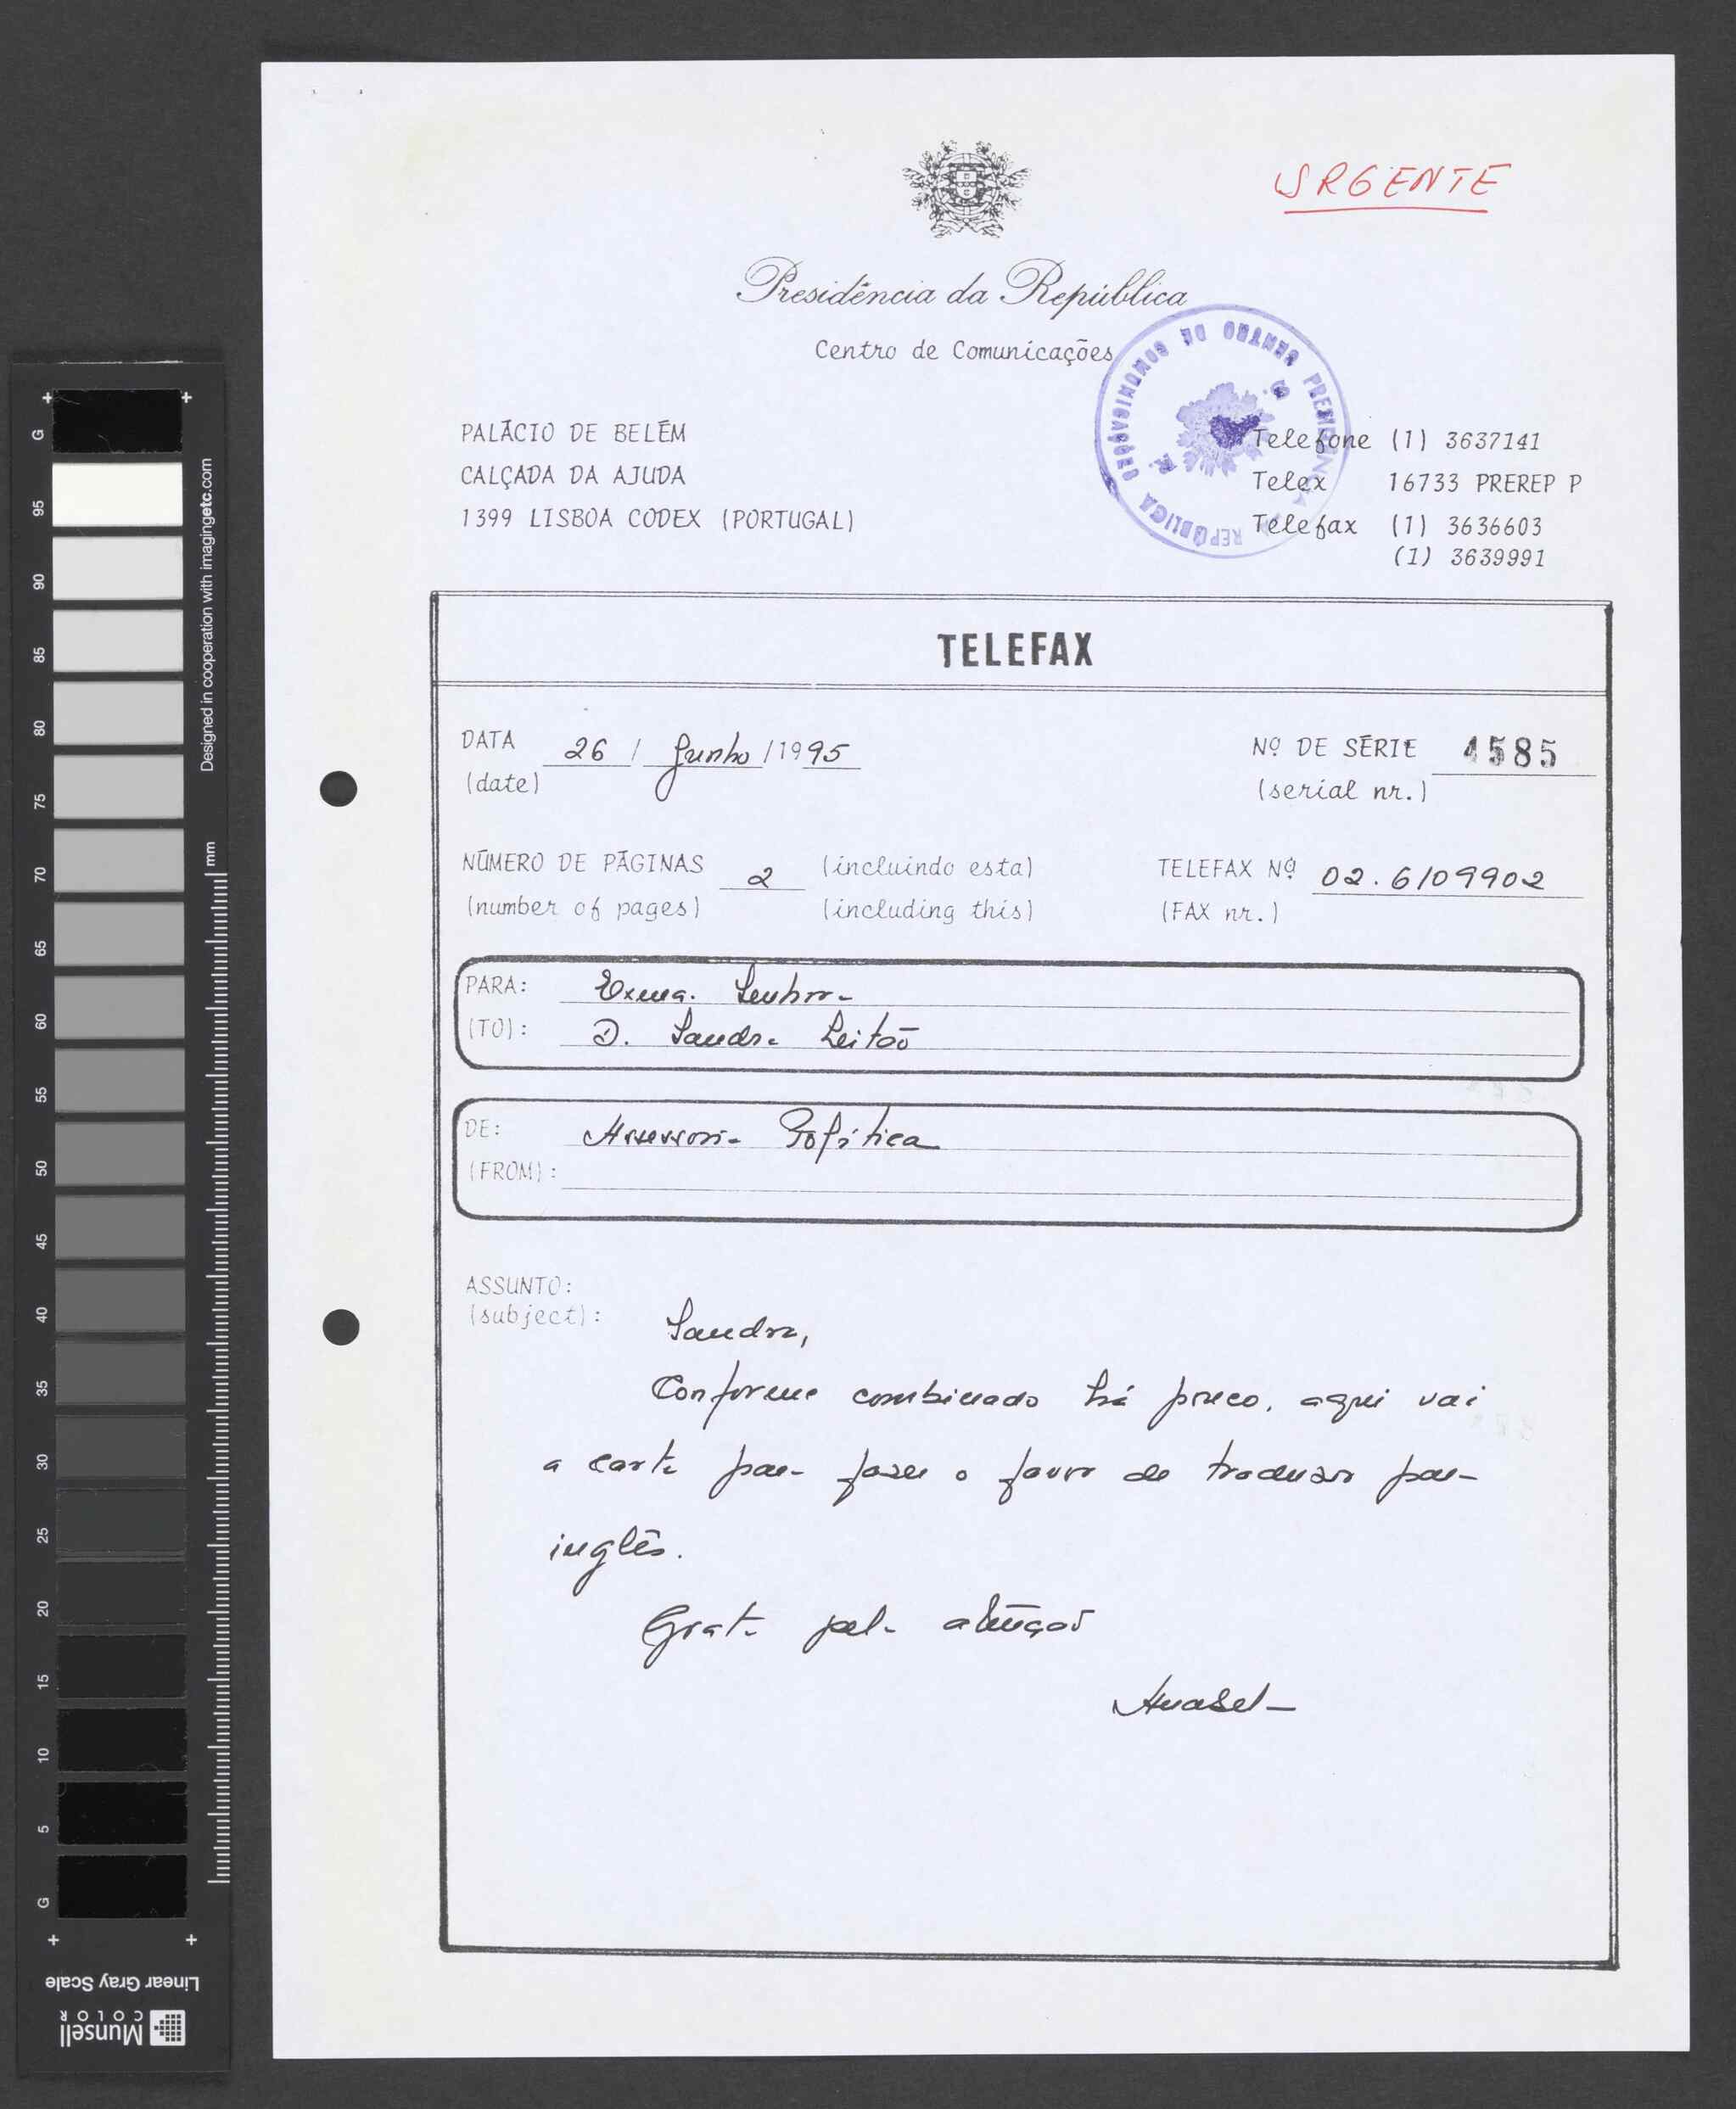 URGENTE
Presidência da República
Centro de Comunicações
PRESIDÊNCIA DA REPÚBLICA
CENTRO DE COMUNICAÇÕES
PALÁCIO DE BELÉM
CALÇADA DA AJUDA
1399 LISBOA CODEX (PORTUGAL)
Telefone (1) 3637141
Telex 16733 PREREP P
Telefax (1) 3636603
(1) 3639991
TELEFAX
DATA 26 / Junho / 1995
(date)
Nº DE SÉRIE 4585
(serial nr.)
NÚMERO DE PÁGINAS 2 (incluindo esta)
(number of pages) (including this)
TELEFAX Nº 02.6109902
(FAX nr.)
PARA: Exma. Senhora
(TO): D. Sandra Leitão
DE: Assessoria Política
(FROM):
ASSUNTO:
(subject):
Sandra,
Conforme combinado há pouco, aqui vai
a carta para fazer o favor de traduzir para
inglês.
Grata pela atenção
Anabela
G
95
90
85
80
75
70
65
60
55
50
45
40
35
30
25
20
15
10
5
G
Designed in cooperation with imagingetc.com
mm
Linear Gray Scale
Munsell
COLOR